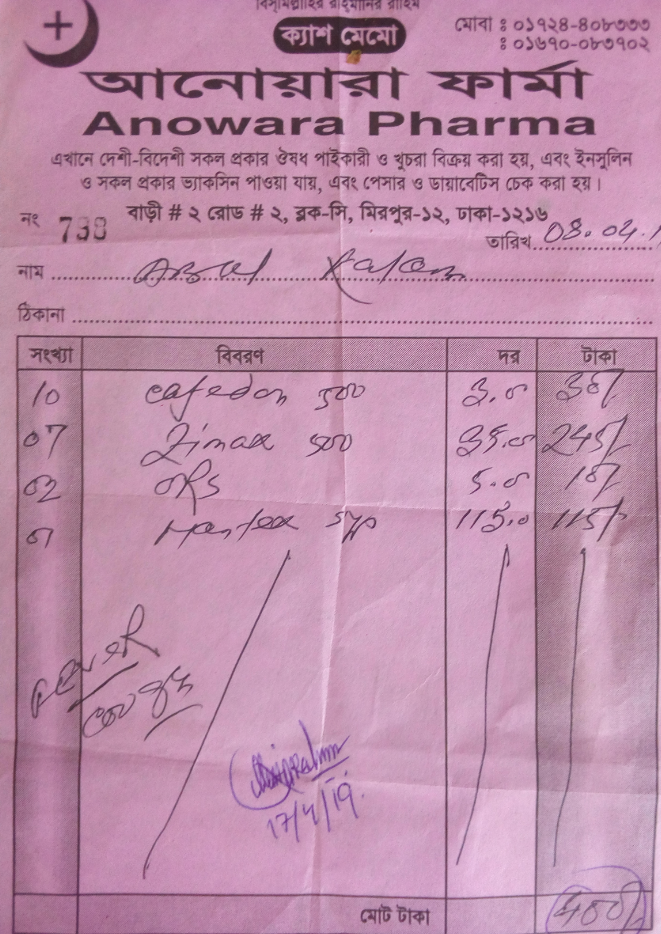 বিসমিল্লাহির রাহমানির রাহিম
ক্যাশ মেমো
মোবা : ০১৭২৪-৪০৮৩৩৩
: ০১৬৭০-০৮৩৭০২
আনোয়ারা ফার্মা
Anowara Pharma
এখানে দেশী-বিদেশী সকল প্রকার ঔষধ পাইকারী ও খুচরা বিক্রয় করা হয়, এবং ইনসুলিন
ও সকল প্রকার ভ্যাকসিন পাওয়া যায়, এবং পেসার ও ডায়াবেটিস চেক করা হয়।
বাড়ী # ২ রোড # ২, ব্লক-সি, মিরপুর-১২, ঢাকা-১২১৬
নং 738
তারিখ 08.04.1
নাম Abul Kalam
ঠিকানা
সংখ্যা বিবরণ দর টাকা
10 500 3.0 30/-
07 Zimax 500 35.0 245/-
02 ORS 5.0 10/-
01 syp 115.0 115/-
FEVER
cough
17/4/19.
মোট টাকা 400/-